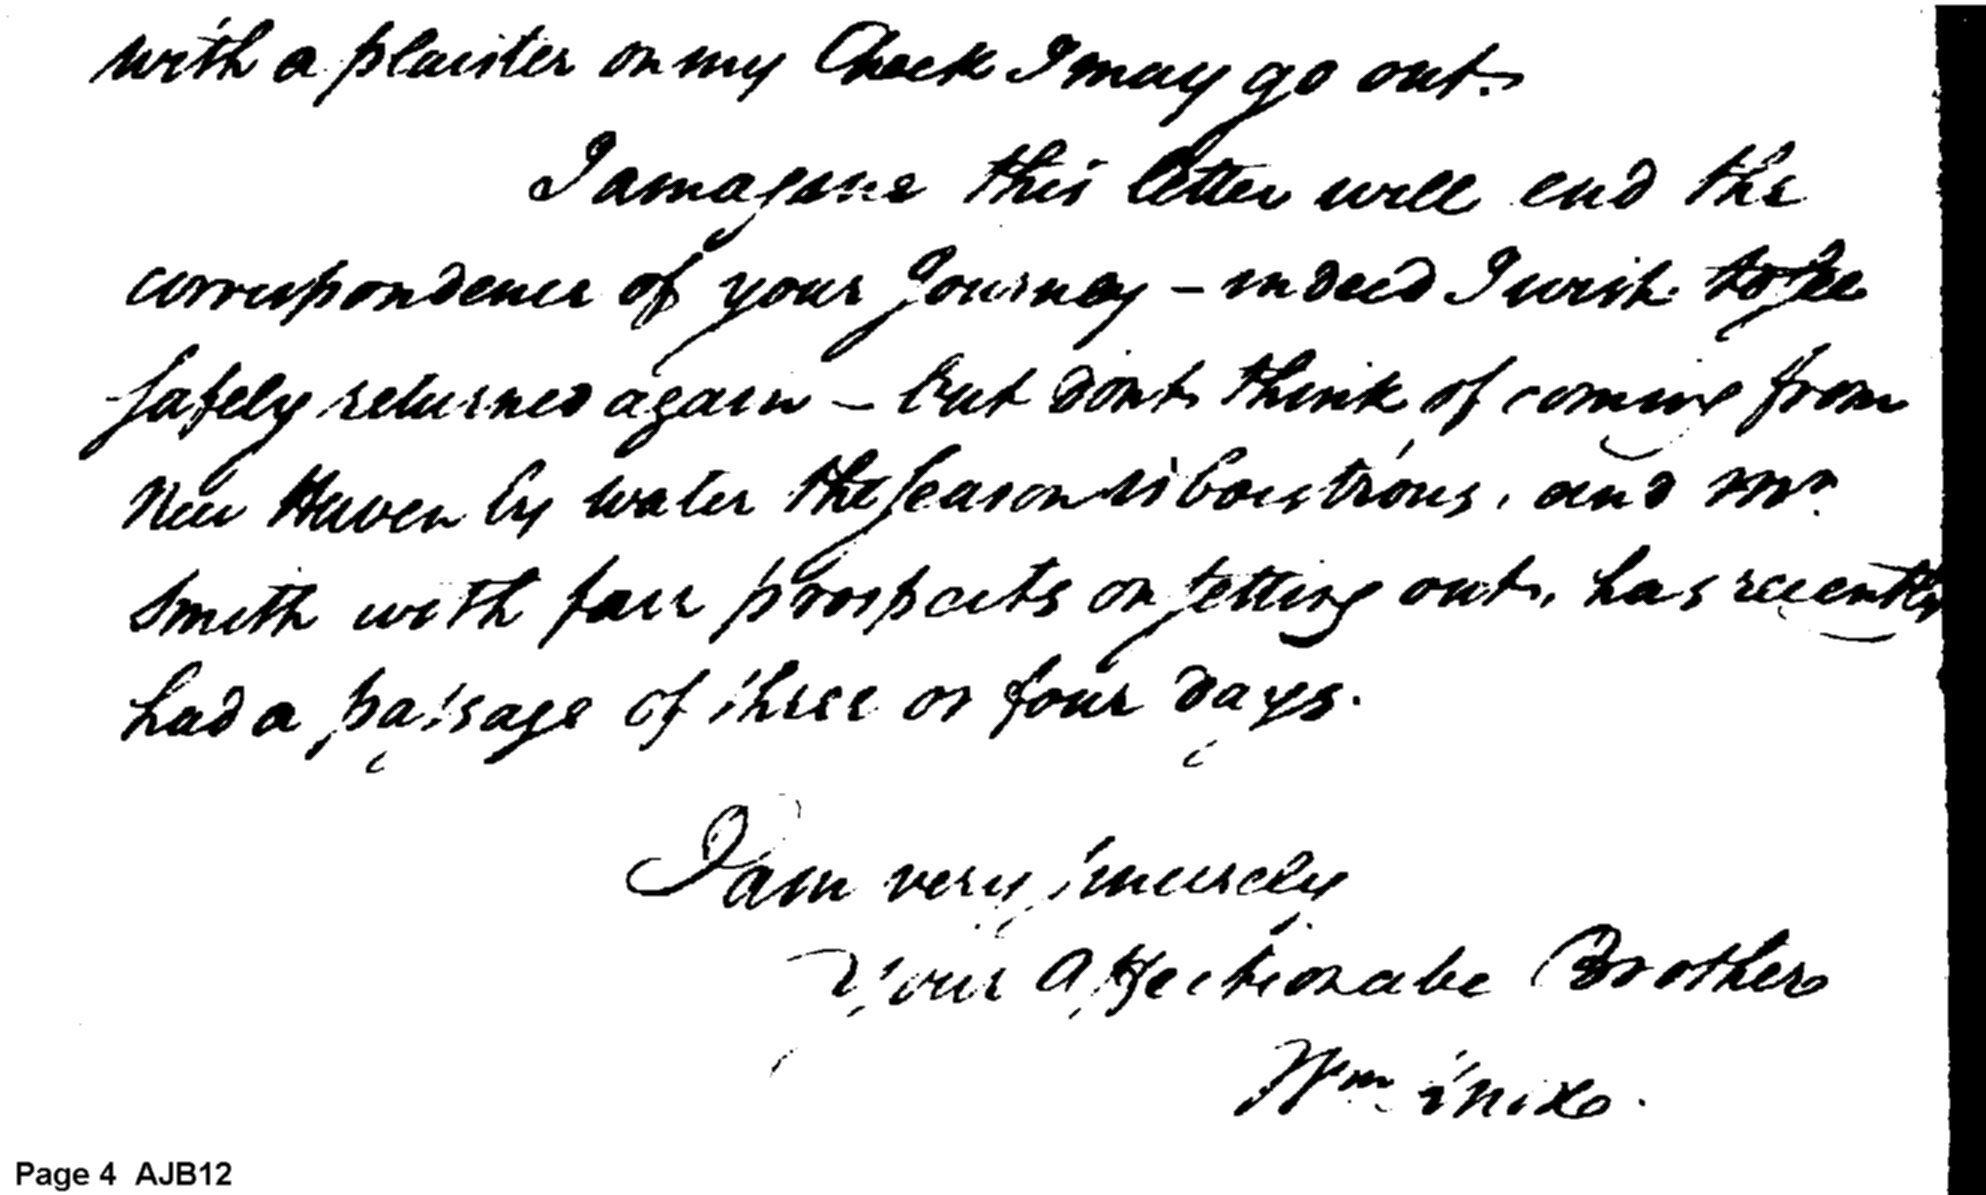 with a plaister on my Cheek I may go out.
I amagine this letter will end the
correspondence of your Journey - indeed I wish to see
safely returned again - but dont think of coming from
New Haven by water the season is boistrous, and Mr.
Smith with fair prospects on setting out, has recently
had a passage of three or four days.
I am very sincerely
Your Affectionate Brother
Wm
Page 4 AJB12